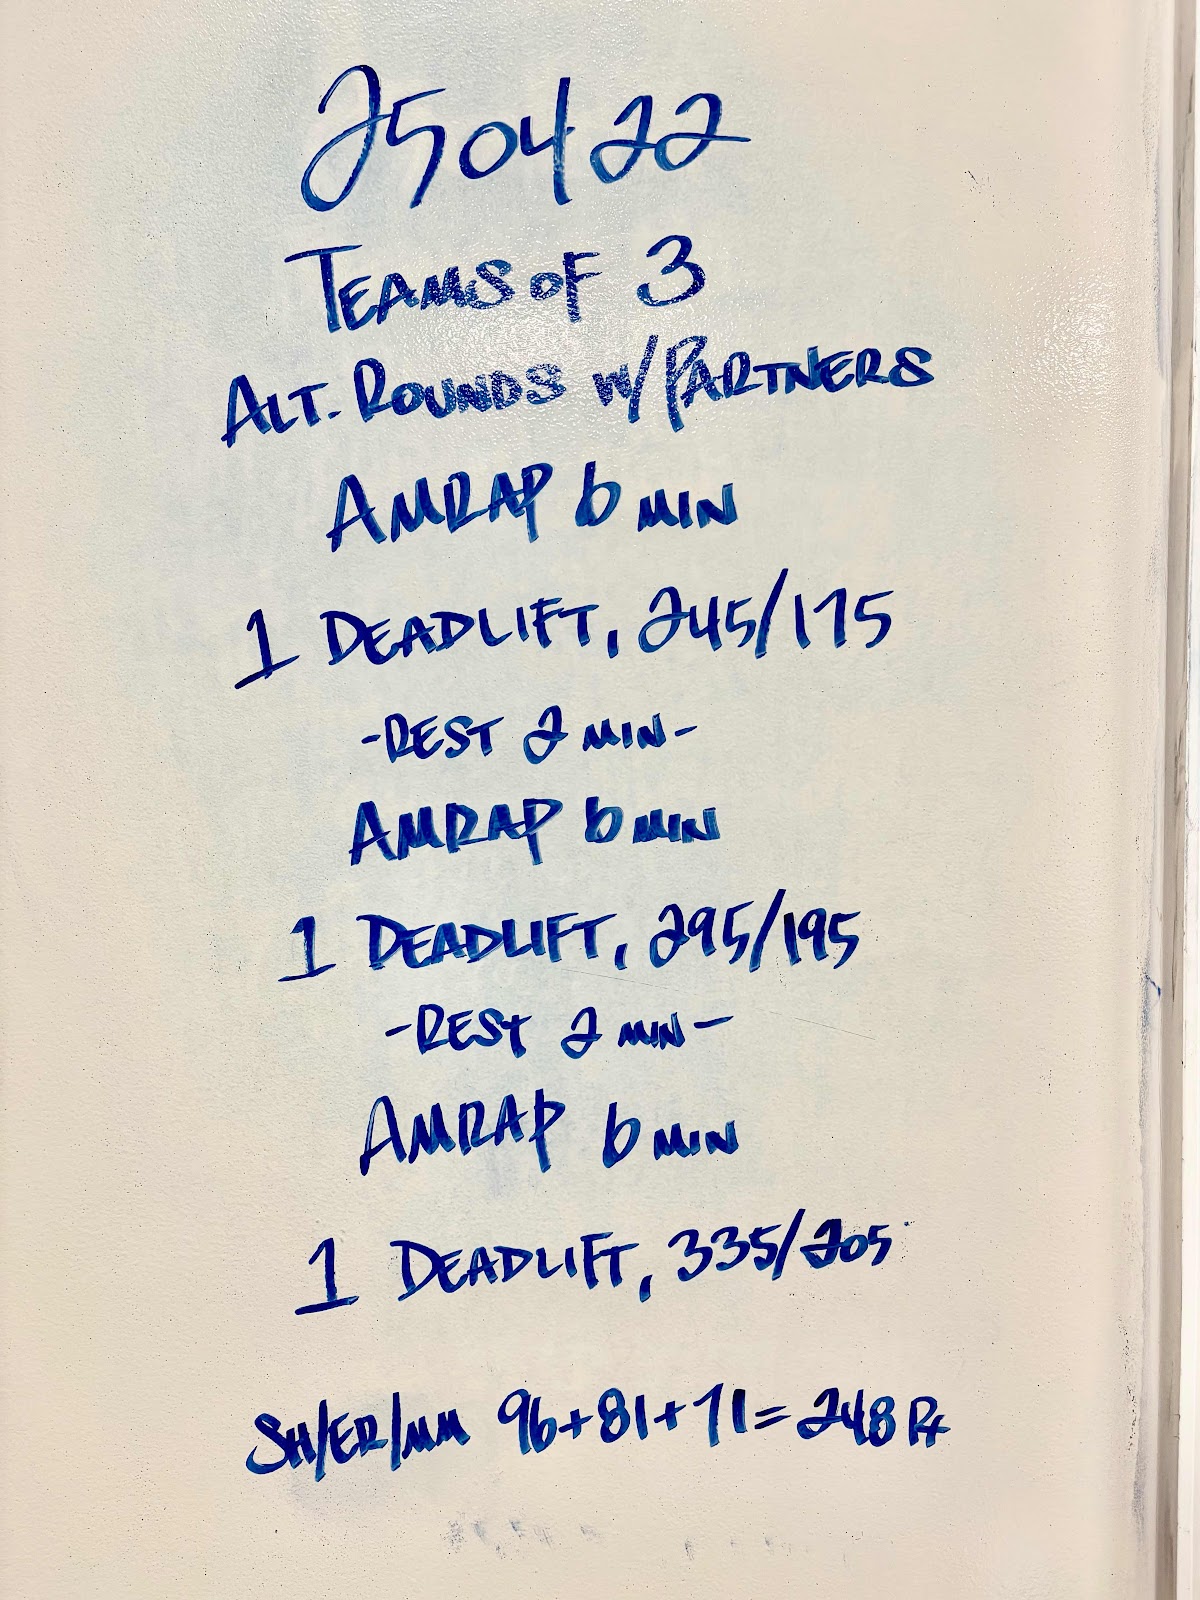 250422
TEAMS OF 3
ALT. ROUNDS W/PARTNERS
AMRAP 6 MIN
1 DEADLIFT, 245/175
-REST 2 MIN-
AMRAP 6 MIN
1 DEADLIFT, 295/195
-REST 2 MIN-
AMRAP 6 MIN
1 DEADLIFT, 335/205
SH/ER/MM 96+81+71=248 Rx